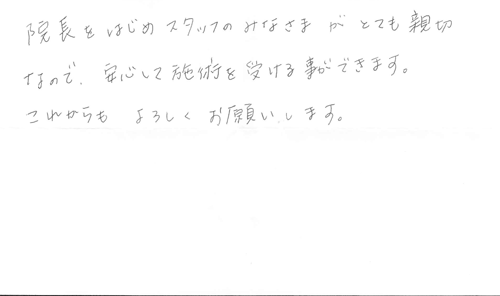 院長をはじめスタッフのみなさまがとても親切
なので、安心して施術を受ける事ができます。
これからもよろしくお願いします。